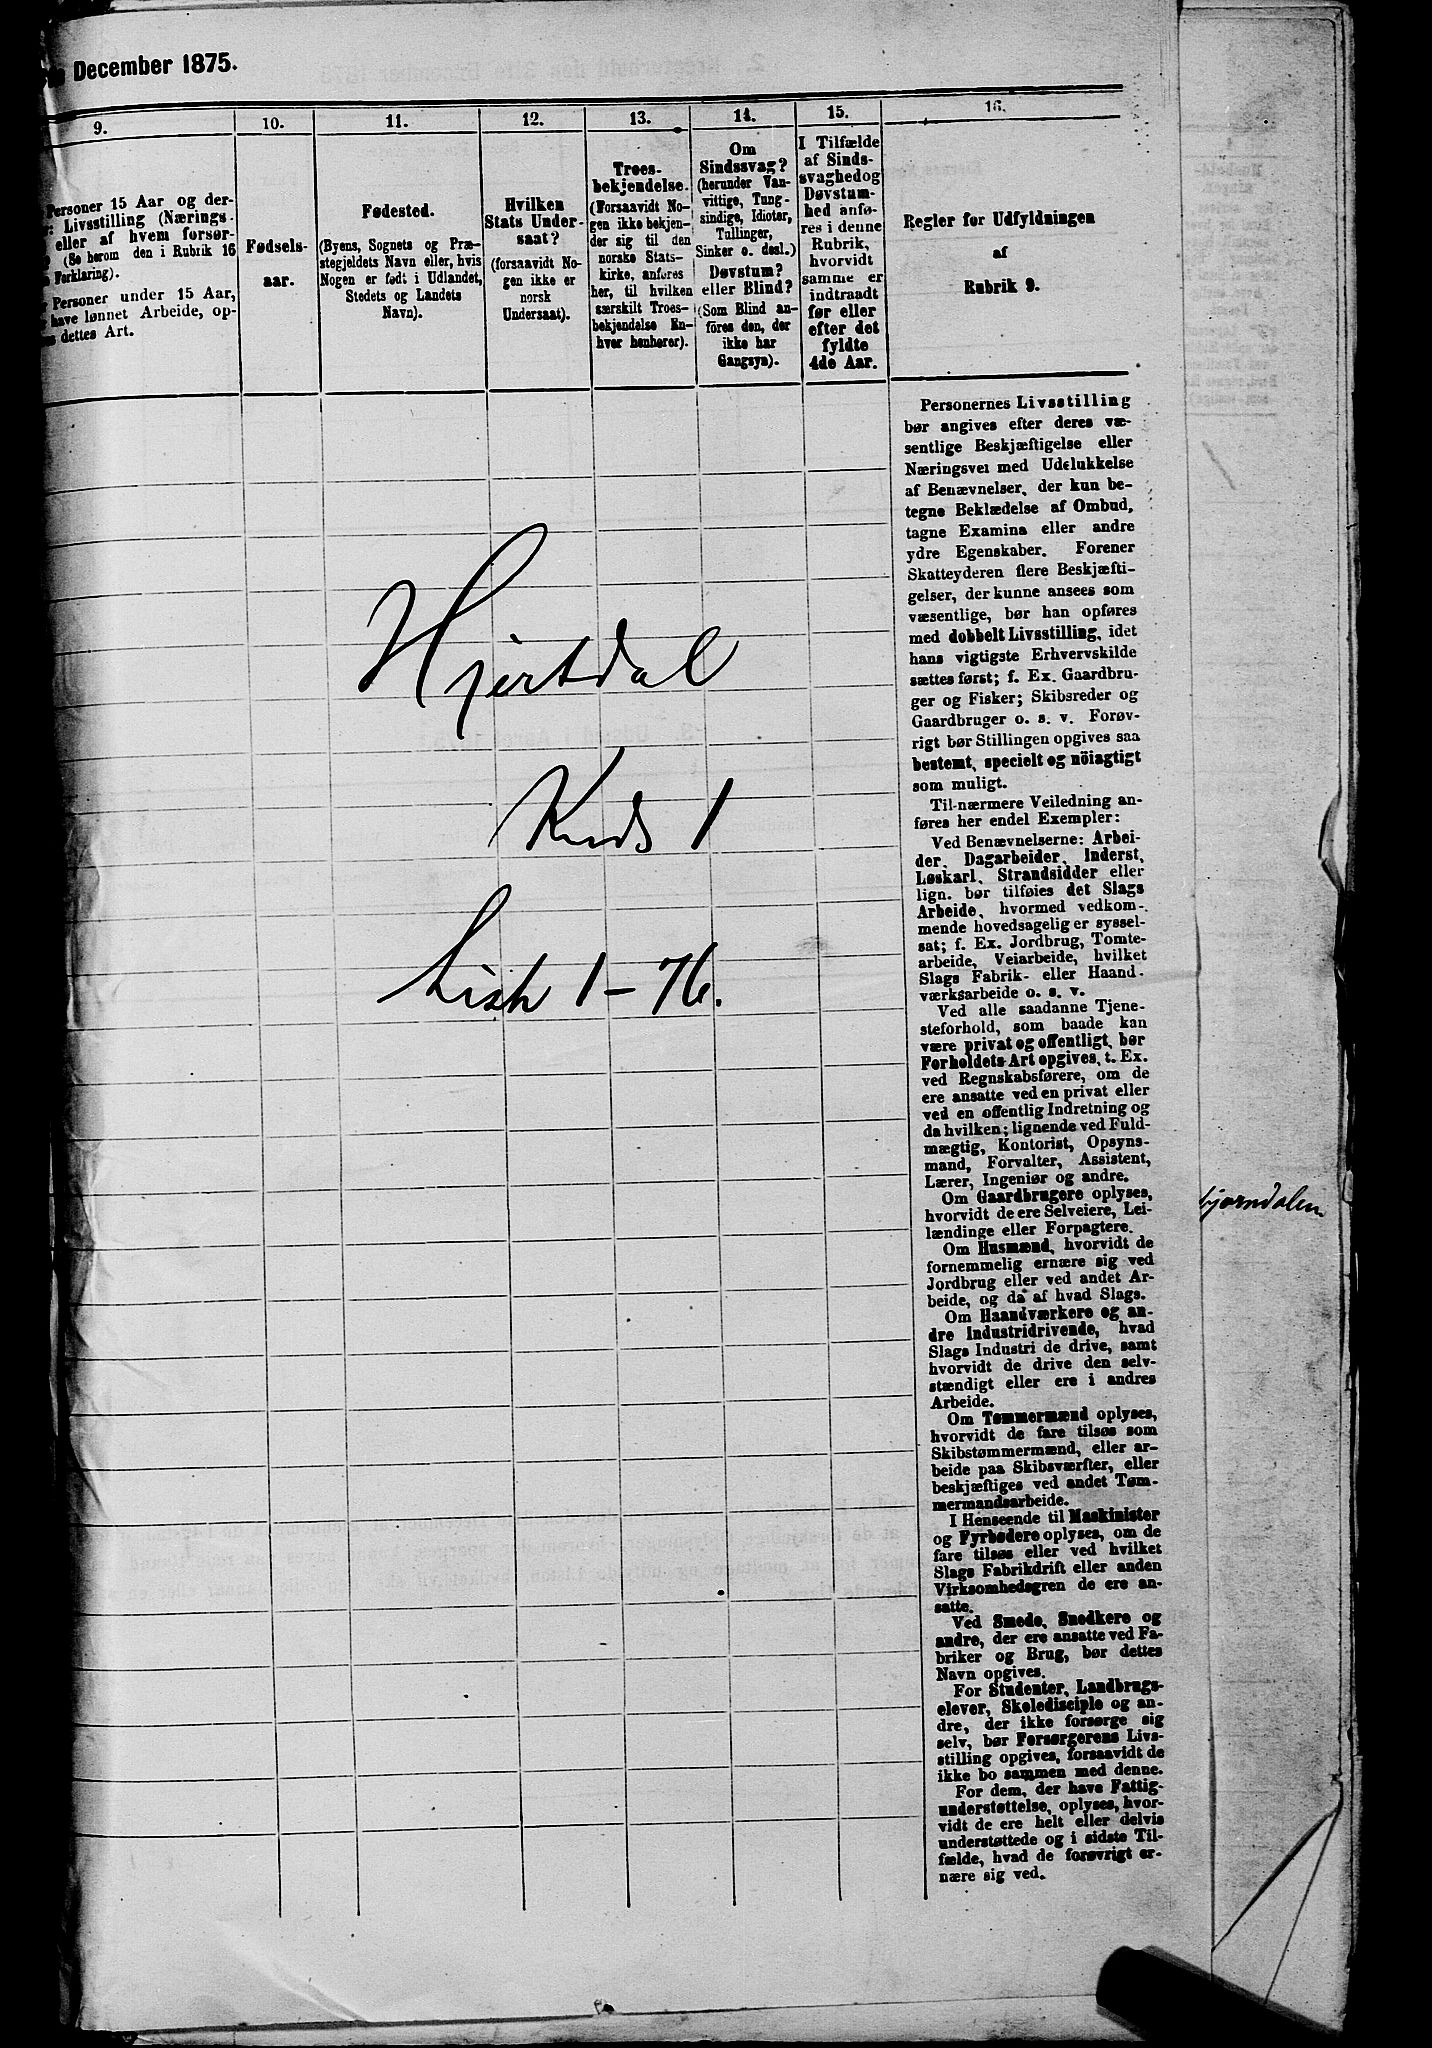 December 1875.
9.
Personer 15 Aar og der-
Livsstilling (Nærings-
eller af hvem forsør-
(Se herom den i Rubrik 16
Forklaring).
Personer under 15 Aar,
have lønnet Arbeide, op-
dettes Art.
10.
Fødsels-
aar.
11.
Fødested.
(Byens, Sognets og Præ-
stegjeldets Navn eller, hvis
Nogen er født i Udlandet,
Stedets og Landets
Navn).
12.
Hvilken
Stats Under-
saat?
(forsaavidt No-
gen ikke er
norsk
Undersaat).
13.
Troes-
bekjendelse.
(Forsaavidt No-
gen ikke bekjen-
der sig til den
norske Stats-
kirke, anføres
her, til hvilken
særskilt Troes-
bekjendelse En-
hver henhører).
14.
Om
Sindssvag?
(herunder Van-
vittige, Tung-
sindige, Idioter,
Tullinger,
Sinker o. desl.)
Døvstum?
eller Blind?
(Som Blind an-
føres den, der
ikke har
Gangsyn).
15.
I Tilfælde
af Sinds-
svaghed og
Døvstum-
hed anfø-
res i denne
Rubrik,
hvorvidt
samme er
indtraadt
før eller
efter det
fyldte
4de Aar.
16.
Regler for Udfyldningen
af
Rubrik 9.
Personernes Livsstilling
bør angives efter deres væ-
sentlige Beskjæftigelse eller
Næringsvei med Udelukkelse
af Benævnelser, der kun be-
tegne Beklædelse af Ombud,
tagne Examina eller andre
ydre Egenskaber. Forener
Skatteyderen flere Beskjæfti-
gelser, der kunne ansees som
væsentlige, bør han opføres
med dobbelt Livsstilling, idet
hans vigtigste Erhvervskilde
sættes først; f. Ex. Gaardbru-
ger og Fisker; Skibsreder og
Gaardbruger o. s. v. Forøv-
rigt bør Stillingen opgives saa
bestemt, specielt og nöiagtigt
som muligt.
Til nærmere Veiledning an-
føres her endel Exempler:
Ved Benævnelserne: Arbei-
der, Dagarbeider, Inderst,
Løskarl, Strandsidder eller
lign. bør tilføies det Slags
Arbeide, hvormed vedkom-
mende hovedsagelig er syssel-
sat; f. Ex. Jordbrug, Tomte-
arbeide, Veiarbeide, hvilket
Slags Fabrik- eller Haand-
værksarbeide o. s. v.
Ved alle saadanne Tjene-
steforhold, som baade kan
være privat og offentligt, bør
Forholdets Art opgives, t. Ex.
ved Regnskabsførere, om de
ere ansatte ved en privat eller
ved en offentlig Indretning og
da hvilken; lignende ved Fuld-
mægtig, Kontorist, Opsyns-
mand, Forvalter, Assistent,
Lærer, Ingeniør og andre.
Om Gaardbrugere oplyses,
hvorvidt de ere Selveiere, Lei-
lændinge eller Forpagtere.
Om Husmænd, hvorvidt de
fornemmelig ernære sig ved
Jordbrug eller ved andet Ar-
beide, og da af hvad Slags.
Om Haandværkere og an-
dre Industridrivende, hvad
Slags Industri de drive, samt
hvorvidt de drive den selv-
stændigt eller ere i andres
Arbeide.
Om Tømmermænd oplyses,
hvorvidt de fare tilsøs som
Skibstømmermænd, eller ar-
beide paa Skibsværfter, eller
beskjæftiges ved andet Tøm-
mermandsarbeide.
I Henseende til Maskinister
og Fyrbødere oplyses, om de
fare tilsøs eller ved hvilket
Slags Fabrikdrift eller anden
Virksomhedsgren de ere an-
satte.
Ved Smede, Snedkere og
andre, der ere ansatte ved Fa-
briker og Brug, bør dettes
Navn opgives.
For Studenter, Landbrugs-
elever, Skoledisciple og an-
dre, der ikke forsørge sig
selv, bør Forsørgerens Livs-
stilling opgives, forsaavidt de
ikke bo sammen med denne.
For dem, der have Fattig-
understøttelse, oplyses, hvor-
vidt de ere helt eller delvis
understøttede og i sidste Til-
fælde, hvad de forøvrigt er-
nære sig ved.
Hjertdal
Kreds 1
Liste 1-76.